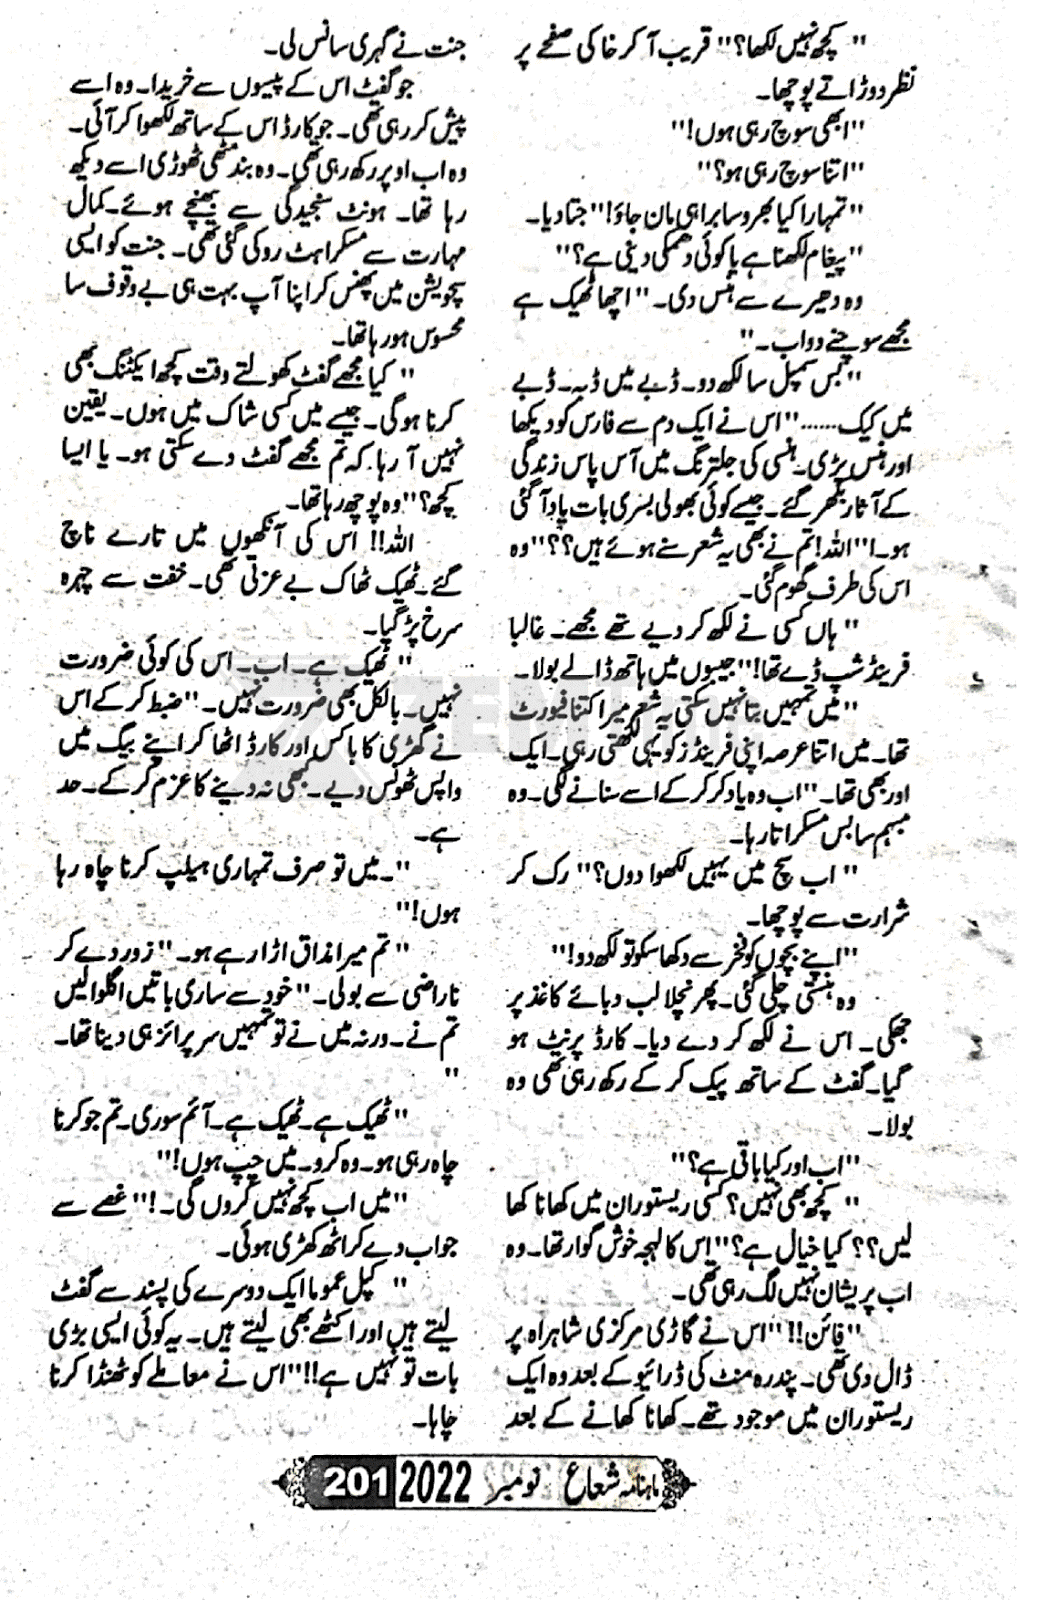 " کچھ نہیں لکھا؟" قریب آ کر خاکی صفحے پر
نظر دوڑاتے پوچھا۔
"ابھی سوچ رہی ہوں!"
"اتنا سوچ رہی ہو؟"
"تمہارا کیا بھروسا برا ہی مان جاؤ!" جتا دیا۔
"پیغام لکھنا ہے یا کوئی دھمکی دینی ہے؟"
وہ دھیرے سے ہنس دی۔ "اچھا ٹھیک ہے
مجھے سوچنے دو اب۔"
"بس سمپل سا لکھ دو۔ ڈبے میں ڈبہ۔ ڈبے
میں کیک......" اس نے ایک دم سے فارس کو دیکھا
اور ہنس پڑی۔ ہنسی کی جلترنگ میں آس پاس زندگی
کے آثار بکھر گئے۔ جیسے کوئی بھولی بسری بات یاد آ گئی
ہو۔ا" اللہ! تم نے بھی یہ شعر سنے ہوئے ہیں؟؟" وہ
اس کی طرف گھوم گئی۔
" ہاں کسی نے لکھ کر دیے تھے مجھے۔ غالبا
فرینڈشپ ڈے تھا!" جیبوں میں ہاتھ ڈالے بولا۔
"میں تمہیں بتا نہیں سکتی یہ شعر میرا کتنا فیورٹ
تھا۔ میں اتنا عرصہ اپنی فرینڈز کو یہی لکھتی رہی۔ ایک
اور بھی تھا۔" اب وہ یاد کر کر کے اسے سنانے لگی۔ وہ
مبہم سا بس مسکراتا رہا۔
" اب سچ میں یہیں لکھوا دوں؟" رک کر
شرارت سے پوچھا۔
"اپنے بچوں کو فخر سے دکھا سکو تو لکھ دو!"
وہ ہنستی چلی گئی۔ پھر نچلا لب دبائے کاغذ پر
جھکی۔ اس نے لکھ کر دے دیا۔ کارڈ پرنٹ ہو
گیا۔ گفٹ کے ساتھ پیک کر کے رکھ رہی تھی وہ
بولا۔
"اب اور کیا باقی ہے؟"
" کچھ بھی نہیں؟ کسی ریستوران میں کھانا کھا
لیں؟؟ کیا خیال ہے؟" اس کا لہجہ خوش گوار تھا۔ وہ
اب پریشان نہیں لگ رہی تھی۔
"فائن!!" اس نے گاڑی مرکزی شاہراہ پر
ڈال دی تھی۔ پندرہ منٹ کی ڈرائیو کے بعد وہ ایک
ریستوران میں موجود تھے۔ کھانا کھانے کے بعد
جنت نے گہری سانس لی۔
جو گفٹ اس کے پیسوں سے خریدا۔ وہ اسے
پیش کر رہی تھی۔ جو کارڈ اس کے ساتھ لکھوا کر آئی۔
وہ اب اوپر رکھ رہی تھی۔ وہ بند مٹھی ٹھوڑی اسے دیکھ
رہا تھا۔ ہونٹ سنجیدگی سے بھینچے ہوئے۔ کمال
مہارت سے مسکراہٹ روکی گئی تھی۔ جنت کو ایسی
سچویشن میں پھنس کر اپنا آپ بہت ہی بے وقوف سا
محسوس ہو رہا تھا۔
" کیا مجھے گفٹ کھولتے وقت کچھ ایکٹنگ بھی
کرنا ہو گی۔ جیسے میں کسی شاک میں ہوں۔ یقین
نہیں آ رہا۔ کہ تم مجھے گفٹ دے سکتی ہو۔ یا ایسا
کچھ؟" وہ پوچھ رہا تھا۔
اللہ!! اس کی آنکھوں میں تارے ناچ
گئے۔ ٹھیک ٹھاک بے عزتی تھی۔ خفت سے چہرہ
سرخ پڑ گیا۔
" ٹھیک ہے۔ اب۔ اس کی کوئی ضرورت
نہیں۔ بالکل بھی ضرورت نہیں۔" ضبط کر کے اس
نے گھڑی کا باکس اور کارڈ اٹھا کر اپنے بیگ میں
واپس ٹھونس دیے۔ کبھی نہ دینے کا عزم کر کے۔ حد
ہے۔
"۔میں تو صرف تمہاری ہیلپ کرنا چاہ رہا
ہوں!"
" تم میرا مذاق اڑا رہے ہو۔" زور دے کر
ناراضی سے بولی۔ "خود سے ساری باتیں اگلوا لیں
تم نے۔ ورنہ میں نے تو تمہیں سرپرائز ہی دینا تھا۔
"
"ٹھیک ہے۔ ٹھیک ہے۔ آئم سوری۔ تم جو کرنا
چاہ رہی ہو۔ وہ کرو۔ میں چپ ہوں!"
"میں اب کچھ نہیں کروں گی۔!" غصے سے
جواب دے کر اٹھ کھڑی ہوئی۔
" کپل عموما ایک دوسرے کی پسند سے گفٹ
لیتے ہیں اور اکٹھے بھی لیتے ہیں۔ یہ کوئی ایسی بڑی
بات تو نہیں ہے!!" اس نے معاملے کو ٹھنڈا کرنا
چاہا۔
ماہنامہ شعاع نومبر 2022 201